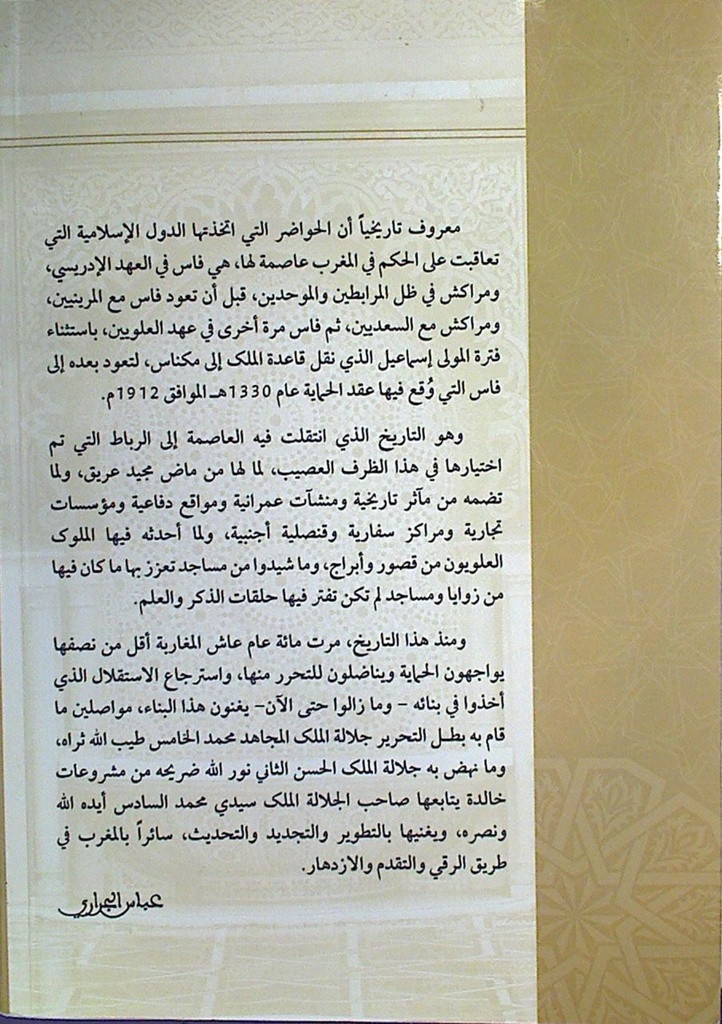 معروف تاريخياً أن الحواضر التي اتخذتها الدول الإسلامية التي
تعاقبت على الحكم في المغرب عاصمة لها، هي فاس في العهد الإدريسي،
ومراكش في ظل المرابطين والموحدين، قبل أن تعود فاس مع المرينيين،
ومراكش مع السعديين، ثم فاس مرة أخرى في عهد العلويين، باستثناء
فترة المولى إسماعيل الذي نقل قاعدة الملك إلى مكناس، لتعود بعده إلى
فاس التي وُقع فيها عقد الحماية عام 1330هـ الموافق 1912م.
وهو التاريخ الذي انتقلت فيه العاصمة إلى الرباط التي تم
اختيارها في هذا الظرف العصيب، لما لها من ماض مجيد عريق، ولما
تضمه من مآثر تاريخية ومنشآت عمرانية ومواقع دفاعية ومؤسسات
تجارية ومراكز سفارية وقنصلية أجنبية، ولما أحدثه فيها الملوك
العلويون من قصور وأبراج، وما شيدوا من مساجد تعزز بها ما كان فيها
من زوايا ومساجد لم تكن تفتر فيها حلقات الذكر والعلم.
ومنذ هذا التاريخ، مرت مائة عام عاش المغاربة أقل من نصفها
يواجهون الحماية ويناضلون للتحرر منها، واسترجاع الاستقلال الذي
أخذوا في بنائه - وما زالوا حتى الآن- يغنون هذا البناء، مواصلين ما
قام به بطل التحرير جلالة الملك المجاهد محمد الخامس طيب الله ثراه،
وما نهض به جلالة الملك الحسن الثاني نور الله ضريحه من مشروعات
خالدة يتابعها صاحب الجلالة الملك سيدي محمد السادس أيده الله
ونصره، ويغنيها بالتطوير والتجديد والتحديث، سائراً بالمغرب في
طريق الرقي والتقدم والازدهار.
عباس الجراري